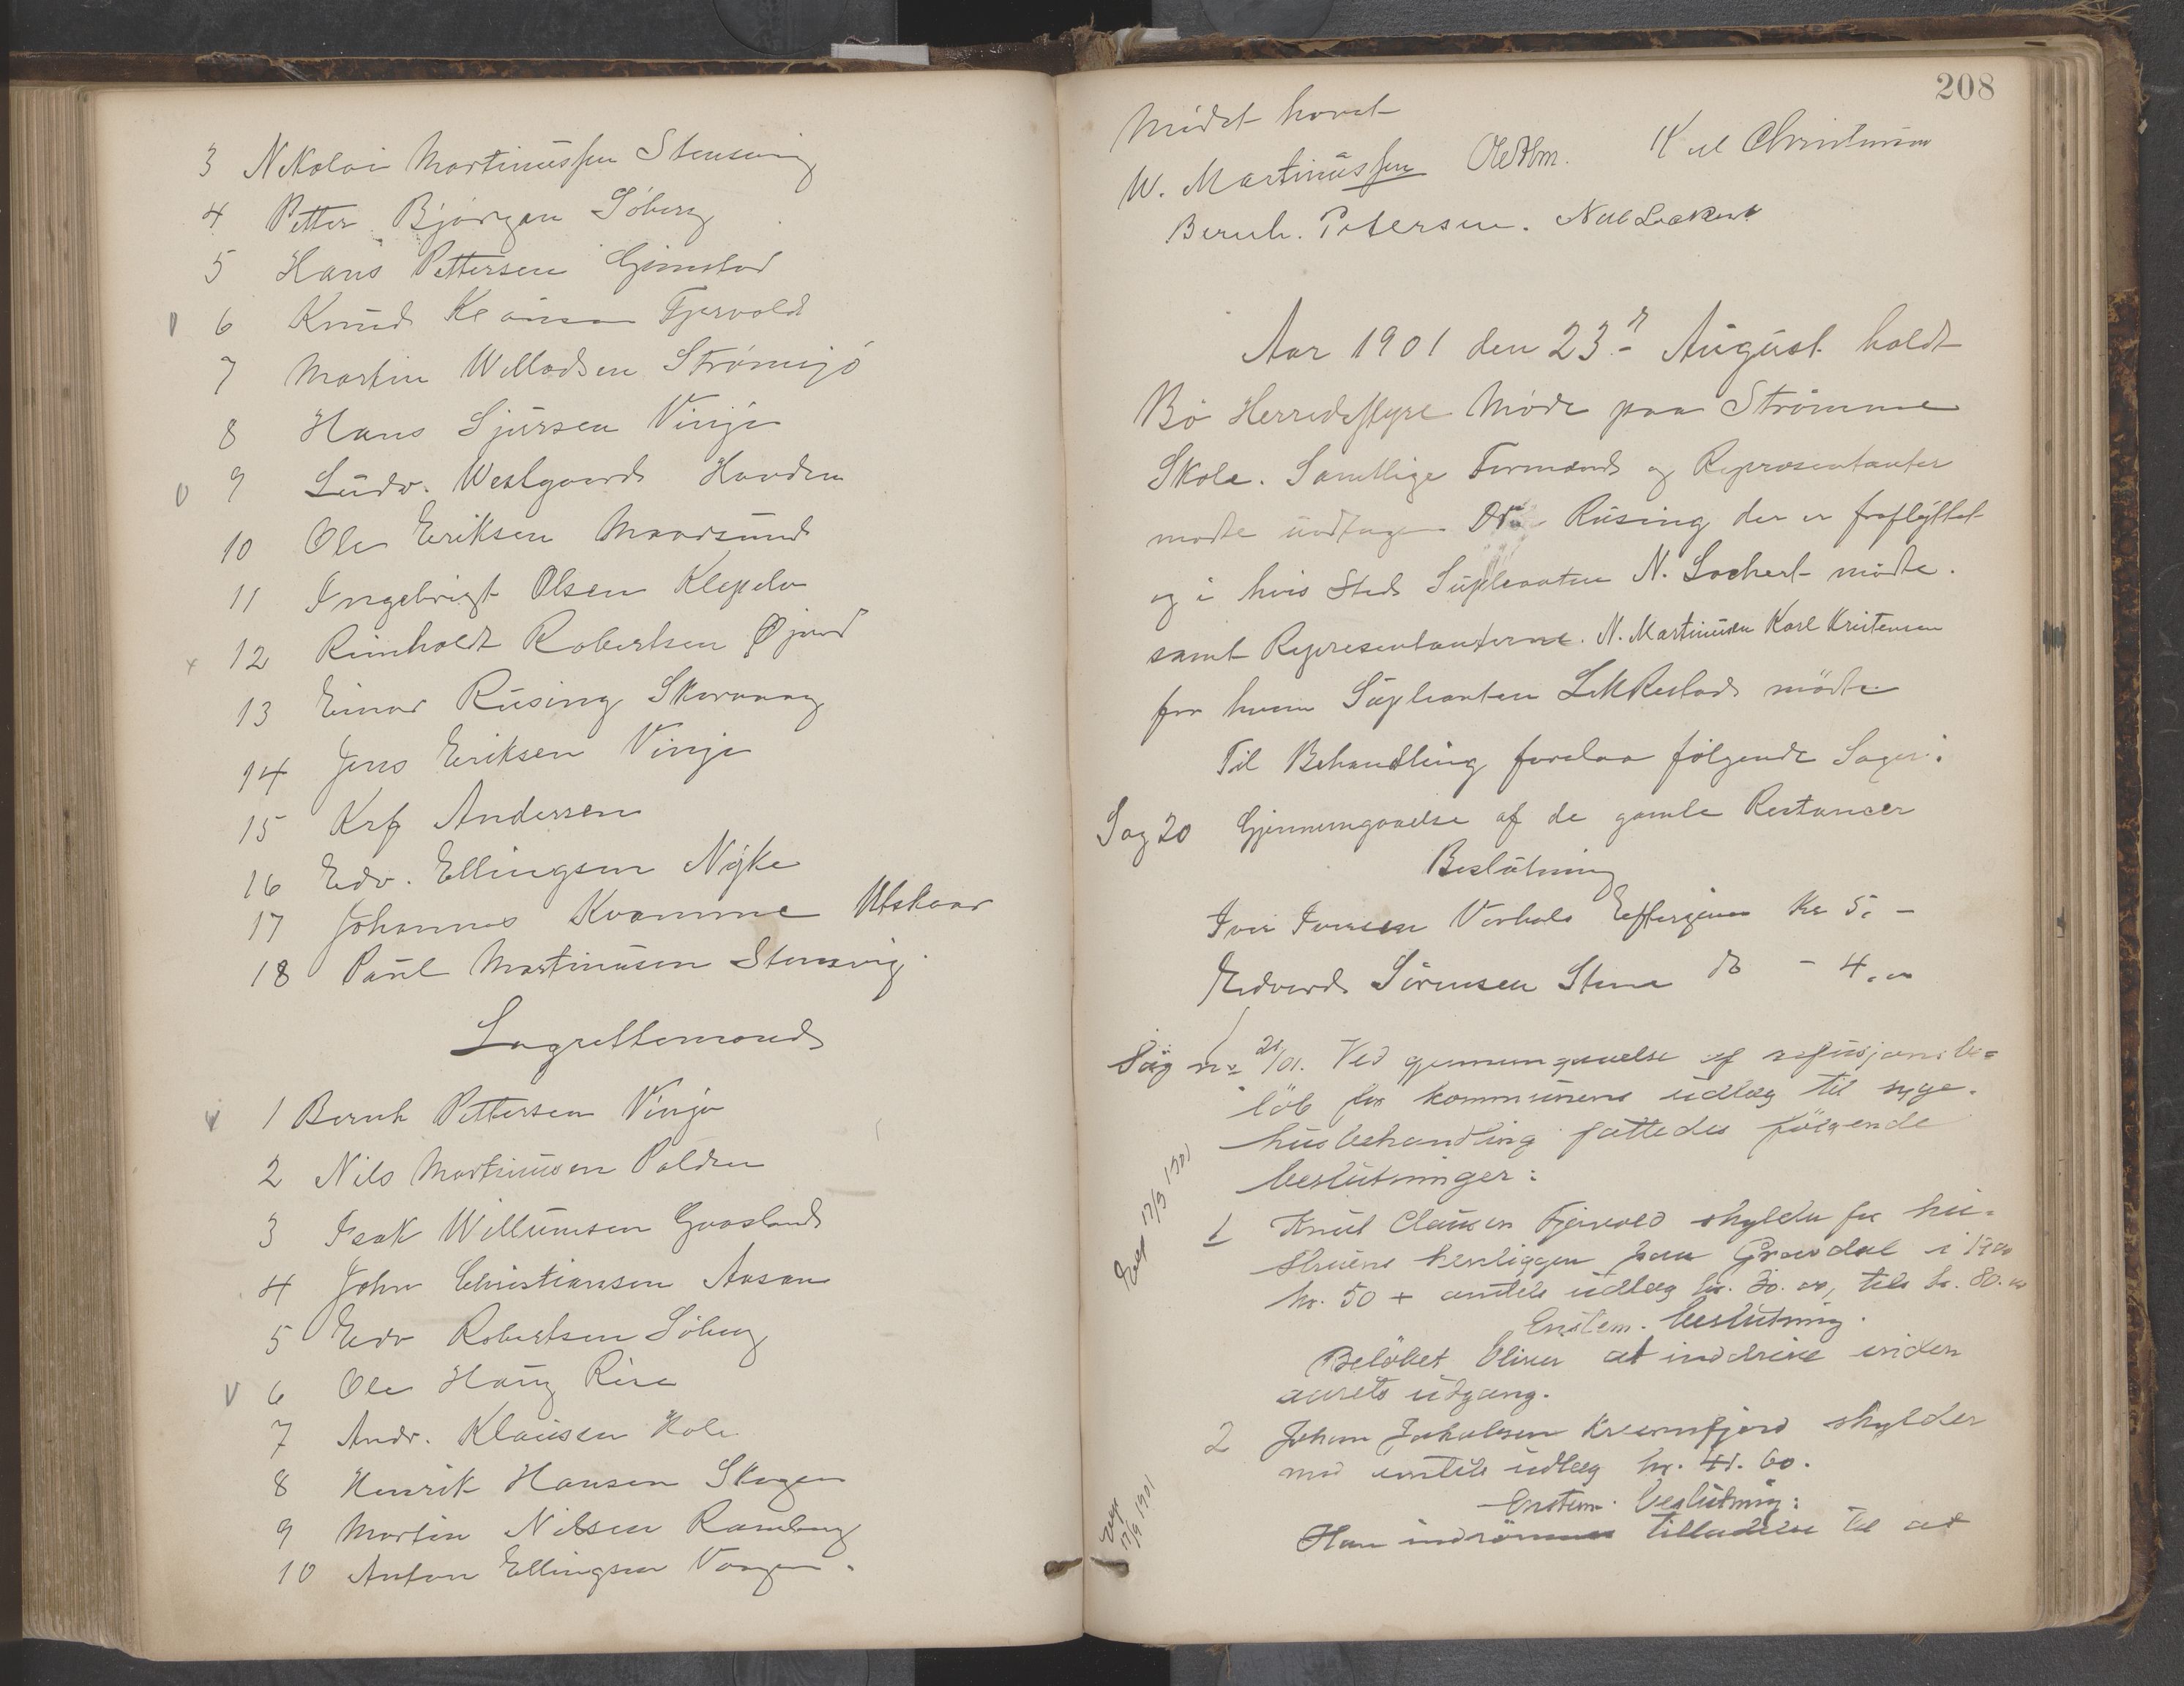 3 Nikolai Martinussen Stensvig
4 Petter Björgan Söberg
5 Hans Pettersen Gimstad
6 Knud Klausen Fjærvoldt
7 Martin Willadsen Strömsjö
8 Hans Sjursen Vinje
9 Ludv. Westgaard Hovden
10 Ole Eriksen Maarsund
11 Ingebrigt Olsen Klepelv
12 Reinholdt Robertsen Øjord
13 Einar Rüsing Skarvaag
14 Jens Eriksen Vinje
15 Andersen
16 Edv. Ellingsen Nÿke
17 Johannes Kvamme Utskaar
18 Paul Martinusen Stensvig
Lagrettemænd
1 Bernh Pettersen Vinje
2 Nils Martinusen Pølden
3 Isak Willumsen Gaasland
4 John Christiansen Aasan
5 Edv Robertsen Söberg
6 Ole Haug Rise
7 Andr. Klausen Hole
8 Henrik Hansen Skagen
9 Martin Nilsen Ramberg
10 Anton Ellingsen
208
Mödet hævet
W. Martinussen
Bernh. Petersen.
Aar 1901 den 23. August holdt
Bö Herredsstyre Möde paa Strömme
Skole. Samtlige Formænd og Representanter
mödte undtagen Rüsing der er fraflÿttet
og i hvis Sted Supleanten N. Lockert mödte.
samt Representanterne. N. Martinusen Karl Kristensen
for hvem Supleanten mödte
Til Behandling forelaa fölgende Sager:
Sag 20 Gjennemgaaelse af de gamle Restancer
Beslutning
Iver Iversen Vorhals Eftergives Kr 5. -
Edvard Sörensen Stene do - 4.00
Sag no 21/01. Ved gjennemgaaelse af refusjonsbe=
löb for kommunens udlæg til syge-
husbehandling fattedes fölgende
beslutninger:
1 Knut Clausen Fjærvold skylder for hu-
struens henliggen paa Gravdal i 1900
kr. 50 + amtets udlæg kr. 30.00, tils kr. 80.00
Enstem. beslutning.
Belöbet bliver at inddrive inden
aarets udgang.
2 Johan Jakobsen Kvernfjord skylder
med amtets udlæg kr. 41.60.
Enstem. beslutning:
Han indrömmes tilladelse til at
Exp 12/9 1901
Exp 12/9 1901